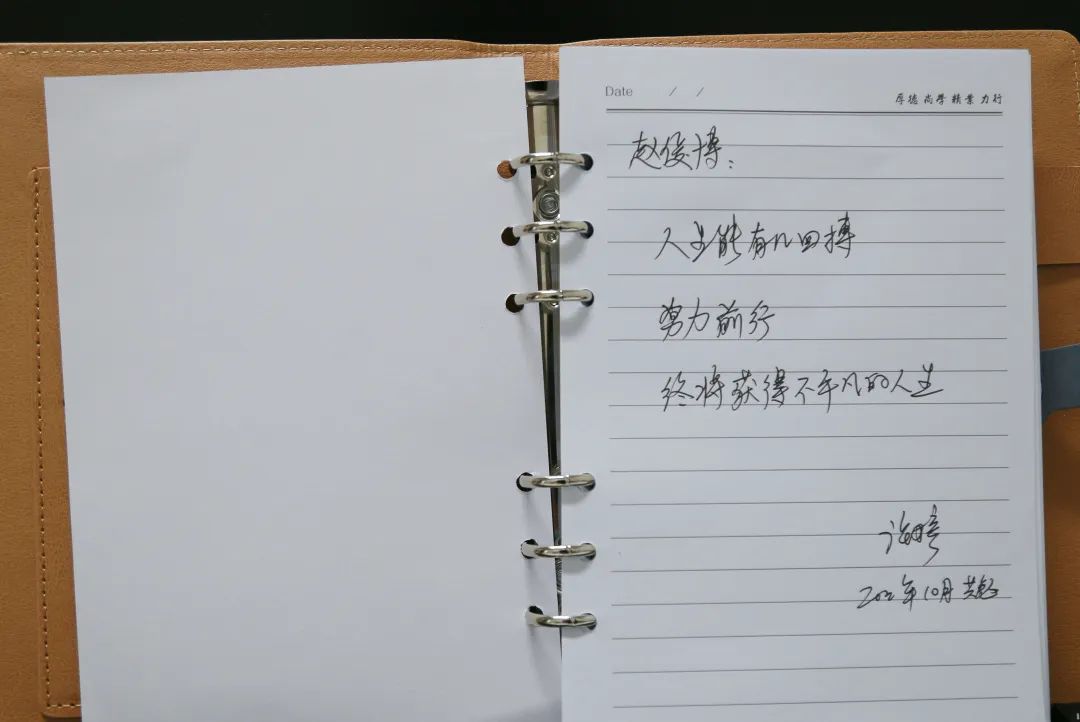 Date / /
厚德 尚学 精业 力行
赵俊博：
人生能有几回搏
努力前行
终将获得不平凡的人生
年10月 共勉